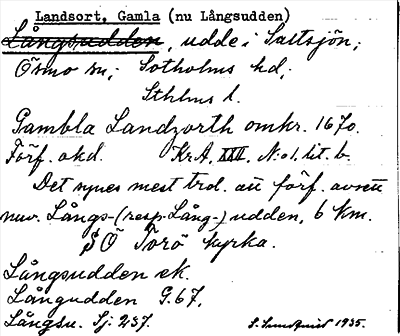 Landsort, Gamla (nu Långsudden)
Långsudden, udde i Saltsjön;
Ösmo sn; Sotholms hd,
Sthlms l.
Gambla Landzorth omkr. 1670.
Förf. okd. KrA, XXII, N:o 1. lit. b.
Det synes mest trol. att förf. avsett
nuv. Långs-(resp. Lång-)udden, 6 km.
SÖ Torö kyrka.
Långsudden ek.
Långudden G.67,
Långsu. Sj. 237.
1935.